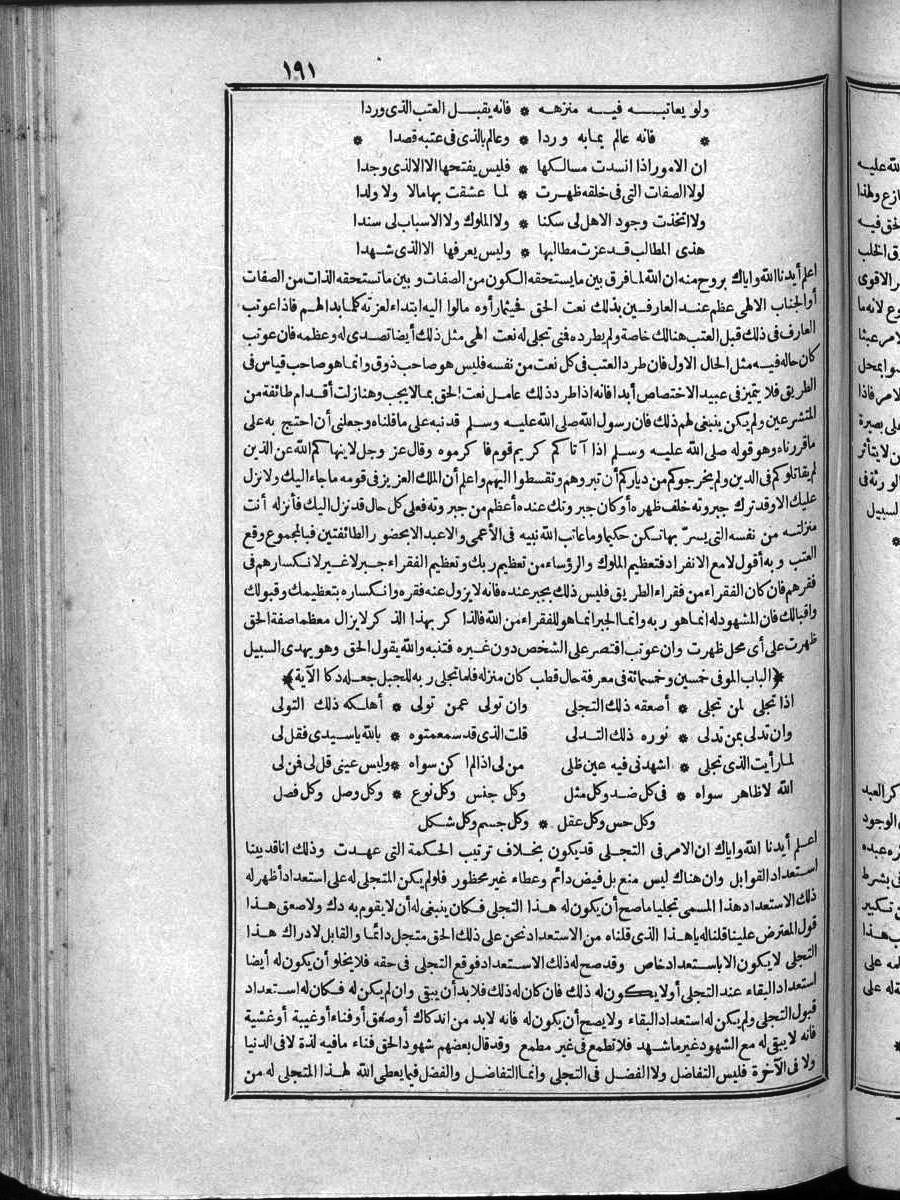 ١٩١
ولو يعاتبه فيه منزهه * فانه يقبل العتب الذى وردا
* فانه عالم بما به وردا * وعالم بالذى فى عتبه قصدا *
ان الامور اذا انسدت مسالكها * فليس يفتحها الا الذى وجدا
لولا الصفات التى فى خلقه ظهرت * لما عشقت بها مالا ولا ولدا
ولا اتخذت وجود الاهل لى سكنا * ولا الملوك ولا الاسباب لى سندا
هذى المطالب قد عزت مطالبها * وليس يعرفها الا الذى شهدا
اعلم أيدنا الله واياك بروح منه ان الله لما فرق بين ما يستحقه الكون من الصفات وبين ما تستحقه الذات من الصفات
أو الجناب الالهى عظم عند العارفين بذلك نعت الحق فحيثما رأوه مالوا اليه ابتداء لعزته كلما بدا لهم فاذا عوتب
العارف فى ذلك قبل العتب هنالك خاصة ولم يطرده فتى تجلى له نعت الهى مثل ذلك أيضا تصدى له وعظمه فان عوتب
كان حاله فيه مثل الحال الاول فان طرد العتب فى كل نعت من نفسه فليس هو صاحب ذوق وانما هو صاحب قياس فى
الطريق فلا يتميز فى عبيد الاختصاص أبدا فانه اذا طرد ذلك عامل نعت الحق بما لا يجب وهنا زلت أقدام طائفة من
المتشرعين ولم يكن ينبغى لهم ذلك فان رسول الله صلى الله عليه وسلم قد نبه على ما قلناه وجعلنى أن احتج به على
ما قررناه وهو قوله صلى الله عليه وسلم اذا أتاكم كريم قوم فاكرموه وقال عز وجل لا ينهاكم الله عن الذين
لم يقاتلوكم فى الدين ولم يخرجوكم من دياركم أن تبروهم وتقسطوا اليهم واعلم أن الملك العزيز فى قومه ما جاء اليك ولا نزل
عليك الا وقد ترك جبروته خلف ظهره أو كان جبروتك عنده أعظم من جبروته فعلى كل حال قد نزل اليك فأنزله أنت
منزلته من نفسه التى يسر بها تكن حكيما وما عاتب الله نبيه فى الأعمى والاعبد الا بحضور الطائفتين فبالمجموع وقع
العتب وبه أقول لا مع الانفراد فتعظيم الملوك والرؤساء من تعظيم ربك وتعظيم الفقراء جبر لا غير لانكسارهم فى
فقرهم فان كان الفقراء من فقراء الطريق فليس ذلك بجبر عنده فانه لا يزول عنه فقره وانكساره بتعظيمك وقبولك
واقبالك فان المشهود له انما هو ربه وانما الجبر انما هو للفقراء من الله فالذاكر بهذا الذكر لا يزال معظما صفة الحق
ظهرت على أى محل ظهرت وان عوتب اقتصر على الشخص دون غيره فتنبه والله يقول الحق وهو يهدى السبيل
﴿الباب الموفى خمسين وخمسمائة فى معرفة حال قطب كان منزله فلما تجلى ربه للجبل جعله دكا الآية﴾
اذا تجلى لمن تجلى * أصعقه ذلك التجلى وان تولى عمن تولى * أهلكه ذلك التولى
وان تدلى بمن تدلى * نوره ذلك التدلى قلت الذى قد سمعتموه * بالله يا سيدى فقل لى
لما رأيت الذى تجلى * اشهدنى فيه عين ظلى من لى اذا لم اكن سواه * وليس عينى قل لى فمن لى
الله لا ظاهر سواه * فى كل ضد وكل مثل وكل جنس وكل نوع * وكل وصل وكل فصل
وكل حس وكل عقل * وكل جسم وكل شكل
اعلم أيدنا الله واياك ان الامر فى التجلى قد يكون بخلاف ترتيب الحكمة التى عهدت وذلك انا قد بينا
استعداد القوابل وان هناك ليس منع بل فيض دائم وعطاء غير محظور فلو لم يكن المتجلى له على استعداد أظهر له
ذلك الاستعداد هذا المسمى تجليا ما صح أن يكون له هذا التجلى فكان ينبغى له أن لا يقوم به دك ولا صعق هذا
قول المعترض علينا قلنا له يا هذا الذى قلناه من الاستعداد نحن على ذلك الحق متجل دائما والقابل لادراك هذا
التجلى لا يكون الا باستعداد خاص وقد صح له ذلك الاستعداد فوقع التجلى فى حقه فلا يخلو أن يكون له أيضا
استعداد البقاء عند التجلى أو لا يكون له ذلك فان كان له ذلك فلا بد أن يبقى وان لم يكن له فكان له استعداد
قبول التجلى ولم يكن له استعداد البقاء ولا يصح أن يكون له فانه لا بد من اندكاك أو صعق أو فناء أو غيبة أو غشية
فانه لا يبقى له مع الشهود غير ما شهد فلا تطمع فى غير مطمع وقد قال بعضهم شهود الحق فناء ما فيه لذة لا فى الدنيا
ولا فى الآخرة فليس التفاضل ولا الفضل فى التجلى وانما التفاضل والفضل فيما يعطى الله لهذا المتجلى له من